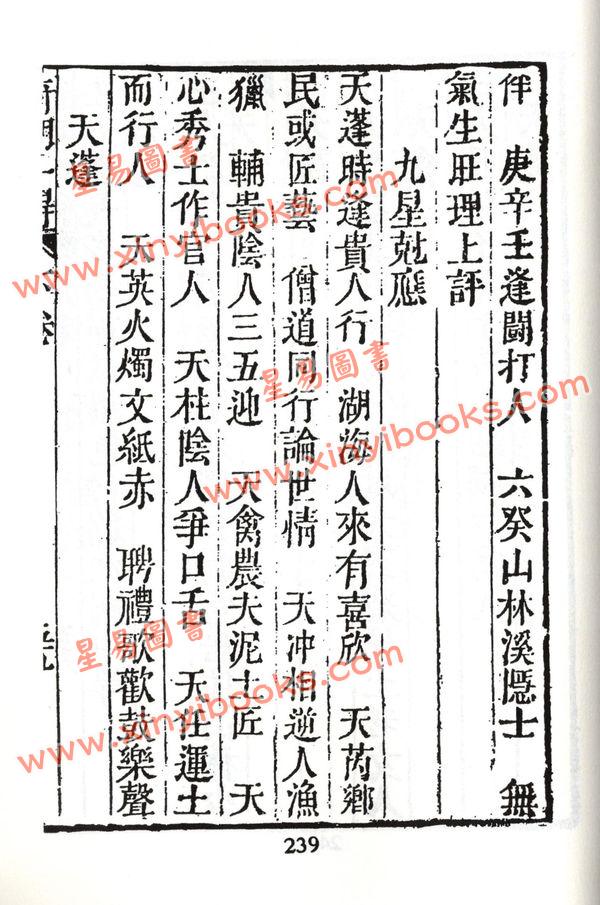 伴　庚辛壬逢鬪打人　六癸山林溪隱士　無
氣生旺理上評
九星尅應
天蓬時逢貴人行　湖海人來有喜欣　天芮鄉
民或匠藝　僧道同行論世情　天冲相逆人漁
獵　輔貴陰人三五迎　天禽農夫泥土匠　天
心秀士作官人　天柱陰人爭口舌　天任運土
而行人　天英火燭文紙赤　聘禮歌歡鼓樂聲
天蓬
239
星易圖書
www.xinyibooks.com
星易圖書
www.xinyibooks.com
星易圖書
www.xinyibooks.com